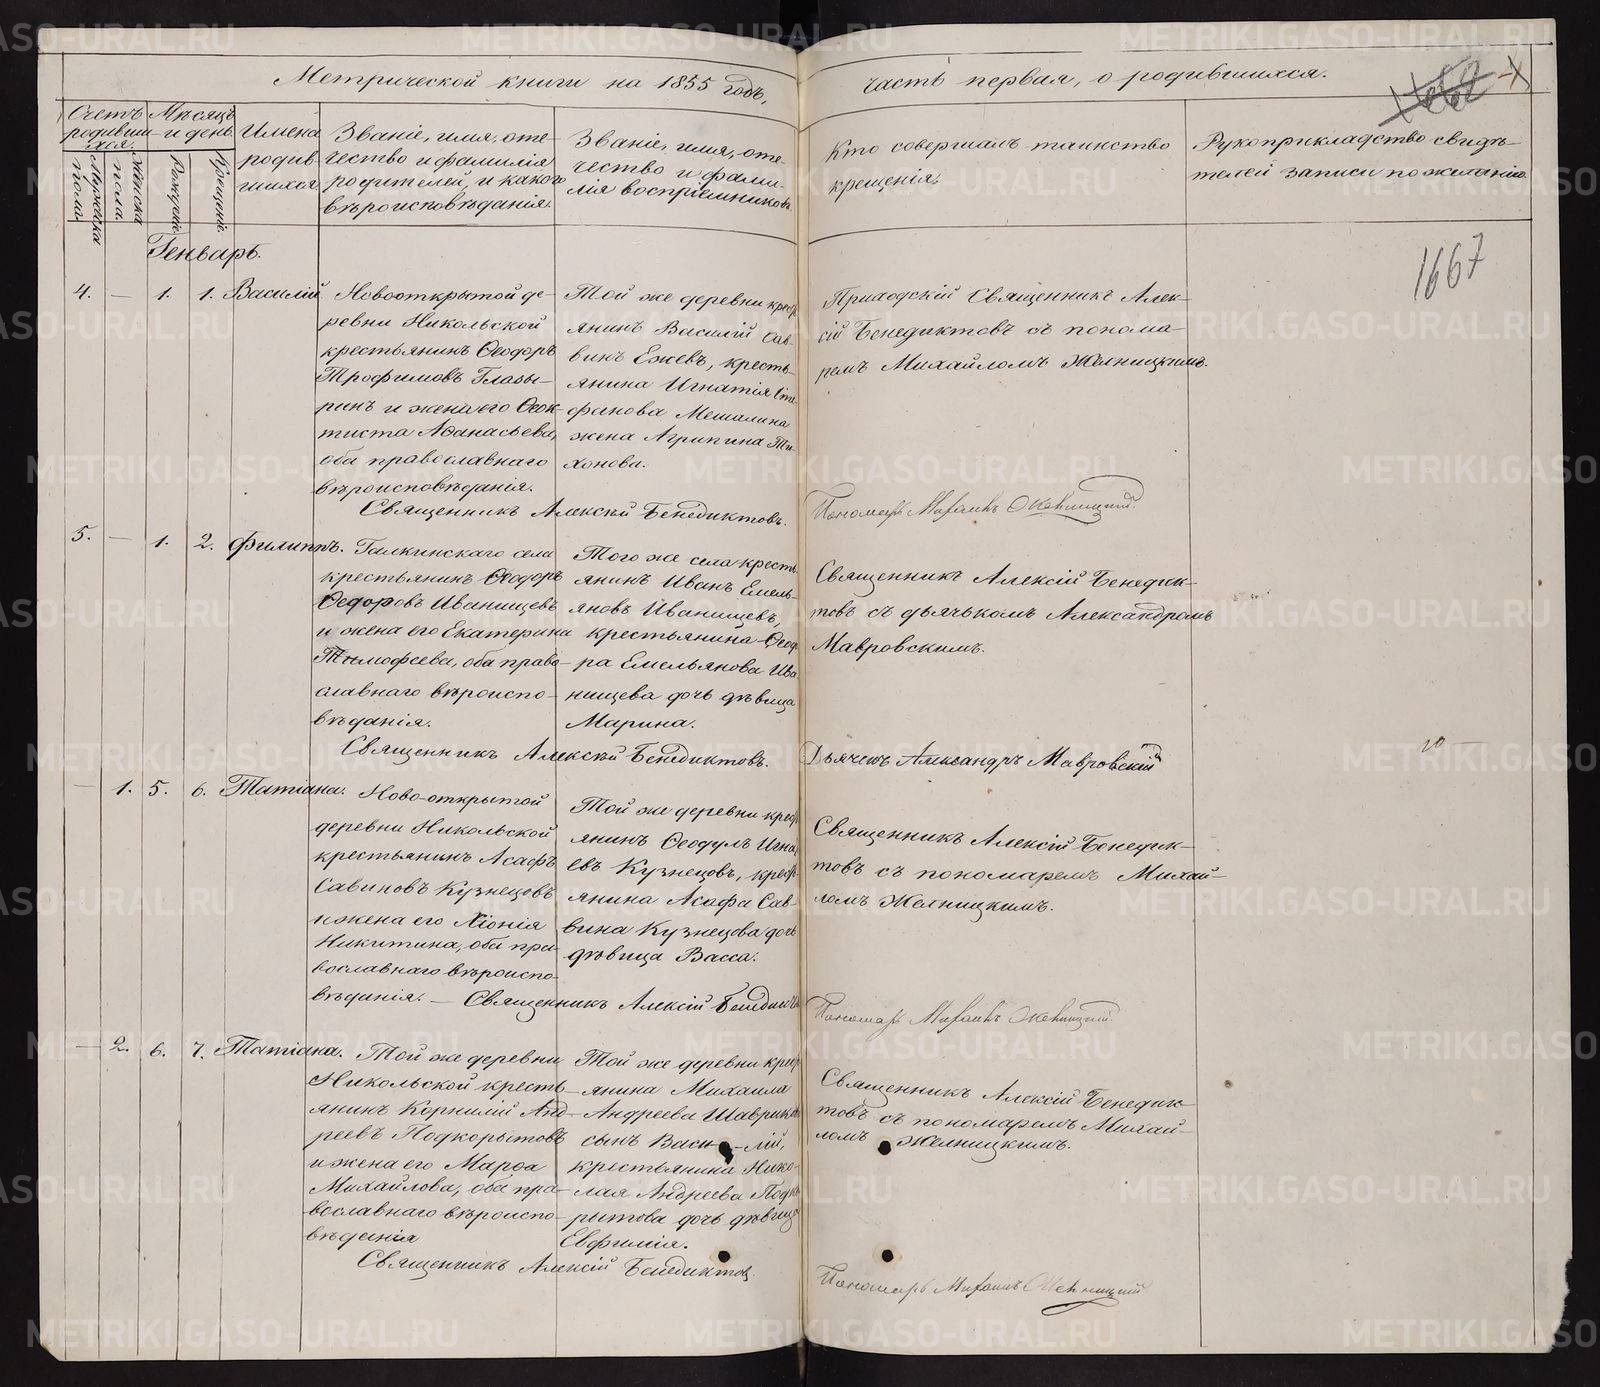 Метрической книги на 1855 годъ,
часть первая, о родившихся.
1667
Счетъ родивши-хся.
Мужеска пола.
Женска пола.
Мѣсяцъ и день
Рожденія
Крещенія
Имена родив-шихся
Званіе, имя, оте-
чество и фамилія
родителей, и какого
вѣроисповѣданія.
Званіе, имя, оте-
чество и фами-
лія воспріемниковъ.
Кто совершалъ таинство
крещенія.
Рукоприкладство свидѣ-
телей записи по желанію.
Генварь.
4. — 1. 1. Василій
Новооткрытой де-
ревни Никольской
крестьянинъ Ѳеодоръ
Трофимовъ Глазы-
ринъ и жена его Ѳеок-
тиста Аѳанасьева,
оба православнаго
вѣроисповѣданія.
Той же деревни крест
янинъ Василій Сав-
винъ Ежевъ, кресть-
янина Игнатія Сте-
фанова Мешалкина
жена Агрипина Ти-
хонова.
Приходскій Священникъ Алек-
сій Бенедиктовъ съ понома-
ремъ Михайломъ Желницкимъ.
Священникъ Алексій Бенедиктовъ.
Пономарь Михаилъ Желницкій.
5. — 1. 2. Филиппъ.
Галкинскаго села
крестьянинъ Ѳеодоръ
Ѳедоровъ Иванищевъ
и жена его Екатерина
Тимофеева, оба право-
славнаго вѣроиспо-
вѣданія.
Того же села кресть
янинъ Иванъ Емель-
яновъ Иванищевъ,
крестьянина Ѳеодо
ра Емельянова Ива
нищева дочь дѣвица
Марина.
Священникъ Алексій Бенедик-
товъ съ дьячькомъ Александромъ
Мавровскимъ.
Священникъ Алексій Бенедиктовъ.
Дьячекъ Александръ Мавровскій
— 1. 5. 6. Татіана.
Ново-открытой
деревни Никольской
крестьянинъ Асафъ
Савиновъ Кузнецовъ
и жена его Хіонія
Никитина, оба пра-
вославнаго вѣроиспо-
вѣданія.
Той же деревни крест
янинъ Ѳеодулъ Игнат
евъ Кузнецовъ, крест
янина Асафа Сав-
вина Кузнецова дочь
дѣвица Васса.
Священникъ Алексій Бенедик-
товъ съ пономаремъ Михай-
ломъ Желницкимъ.
— Священникъ Алексій Бенедиктов
Пономарь Михаилъ Желницкій.
— 2. 6. 7. Татіана.
Той же деревни
Никольской кресть-
янинъ Корнилій Анд-
реевъ Подкорытовъ
и жена его Марѳа
Михайлова, оба пра-
вославнаго вѣроиспо-
вѣданія
Той же деревни крест
янина Михаила
Андреева Шаврик
сынъ Васи-лій,
крестьянина Нико-
лая Андреева Подко
рытова дочь дѣвица
Евфимія.
Священникъ Алексій Бенедик-
товъ съ пономаремъ Михай-
ломъ Желницкимъ.
Священникъ Алексій Бенедиктовъ.
Пономарь Михаилъ Желницкій
METRIKI.GASO-URAL.RU